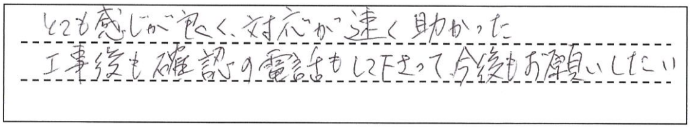 とても感じが良く、対応が速く助かった
工事後も確認の電話もして下さって、今後もお願いしたい